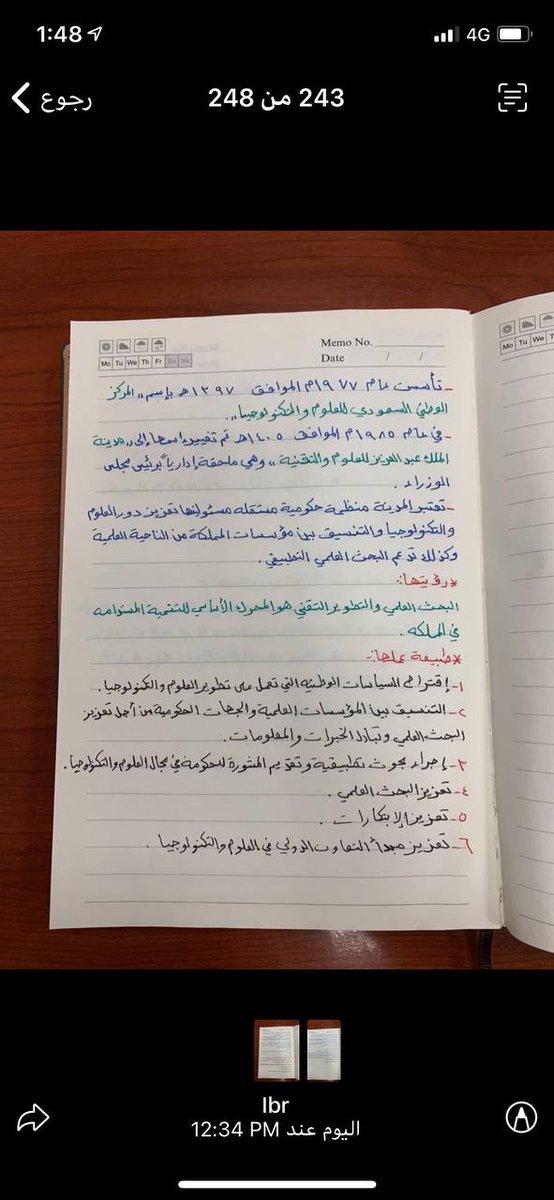 1:48
4G
رجوع
243 من 248
Memo No.
Mo Tu We Th Fr Sa Su
Date / /
Mo Tu We T
- تأسست عام ١٩٧٧م الموافق ١٣٩٧هـ بإسم ,, المركز
الوطني السعودي للعلوم والتكنولوجيا ,,.
- في عام ١٩٨٥م الموافق ١٤٠٥هـ تم تغيير إسمها إلى ,, مدينة
الملك عبدالعزيز للعلوم والتقنية ,, وهي ملحقة إدارياً برئيس مجلس
الوزراء .
- تعتبر المدينة منظمة حكومية مستقله مسئوليتها تعزيز دور العلوم
والتكنولوجيا والتنسيق بين مؤسسات المملكة من الناحية العلمية
وكذلك تدعم البحث العلمي التطبيقي .
* رؤيتها :-
البحث العلمي والتطوير التقني هو المحرك الأساسي للتنمية المستدامه
في المملكه .
* طبيعة عملها :-
١- إقتراح السياسات الوطنيه التي تعمل على تطوير العلوم والتكنولوجيا .
٢- التنسيق بين المؤسسات العلمية والجهات الحكومية من أجل تعزيز
البحث العلمي وتبادل الخبرات والمعلومات .
٣- إجراء بحوث تطبيقية وتقديم المشورة للحكومة في مجال العلوم والتكنولوجيا .
٤- تعزيز البحث العلمي .
٥- تعزيز الإبتكارات .
٦- تعزيز مبدأ التعاون الدولي في العلوم والتكنولوجيا .
Ibr
اليوم عند 12:34 PM